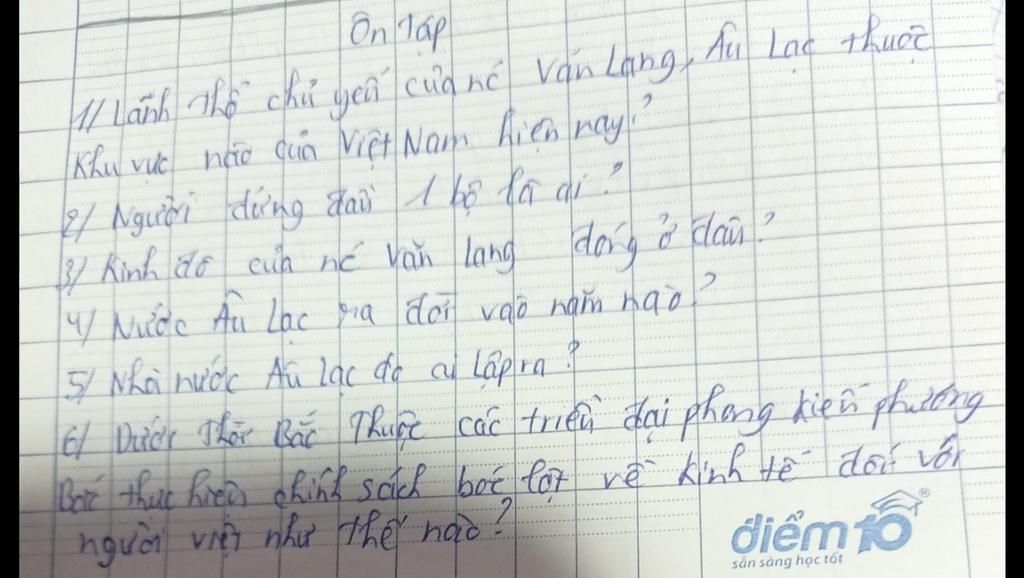 Ôn Tập
1/ Lãnh thổ chủ yếu của nc Văn Lang, Âu Lạc thuộc
Khu vực nào của Việt Nam hiện nay?
2/ Người đứng đầu 1 bộ là ai?
3/ Kinh đô của nc Văn Lang đóng ở đâu?
4/ Nước Âu Lạc ra đời vào năm nào?
5/ Nhà nước Âu Lạc do ai lập ra?
6/ Dưới Thời Bắc Thuộc các triều đại phong kiến phương
Bắc thực hiện chính sách bóc lột về kinh tế đối với
người việt như thế nào?
điểm 10®
sẵn sàng học tốt